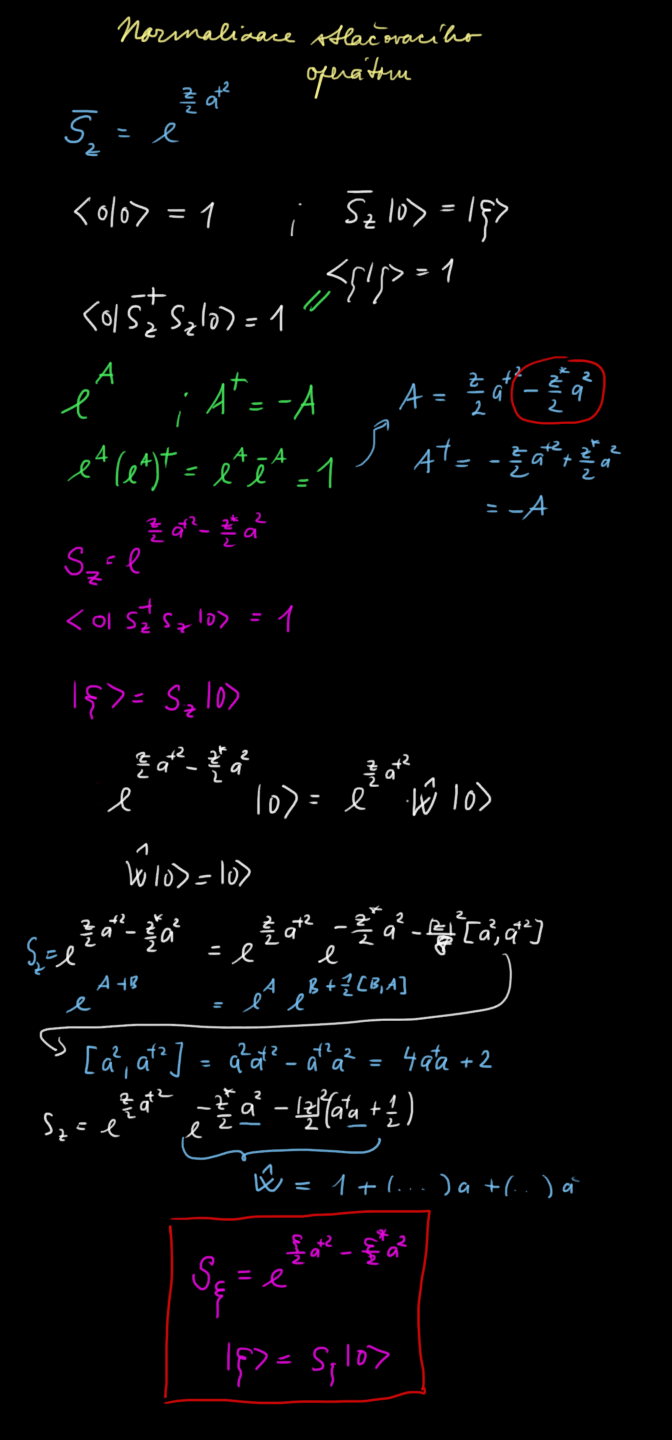 Normalizace stlačovacího
operátoru
S̅_z = e^{z/2 a^{+2}}
<0|0> = 1 ; S̅_z |0> = |ξ>
<ξ|ξ> = 1
<0| S̅_z^+ S_z |0> = 1 //
e^A ; A^+ = -A
e^A (e^A)^+ = e^A e^{-A} = 1
A = z/2 a^{+2} - z*/2 a^2
A^+ = - z/2 a^{+2} + z*/2 a^2
= -A
S_z = e^{z/2 a^{+2} - z*/2 a^2}
<0| S_z^+ S_z |0> = 1
|ξ> = S_z |0>
e^{z/2 a^{+2} - z*/2 a^2} |0> = e^{z/2 a^{+2}} · Ŵ |0>
Ŵ |0> = |0>
S_z = e^{z/2 a^{+2} - z*/2 a^2} = e^{z/2 a^{+2}} e^{- z*/2 a^2 - |z|^2/8 [a^2, a^{+2}]}
e^{A+B} = e^A e^{B + 1/2 [B,A]}
[a^2, a^{+2}] = a^2 a^{+2} - a^{+2} a^2 = 4a^+a + 2
S_z = e^{z/2 a^{+2}} e^{- z*/2 a^2 - |z|^2/2 (a^+a + 1/2)}
Ŵ = 1 + (...) a + (..) a
S_ξ = e^{ξ/2 a^{+2} - ξ*/2 a^2}
|ξ> = S_ξ |0>